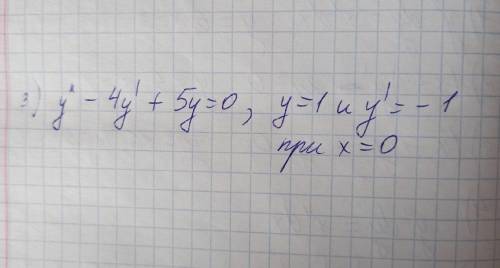 3) y" - 4y' + 5y = 0, y = 1 и y' = -1
при x = 0